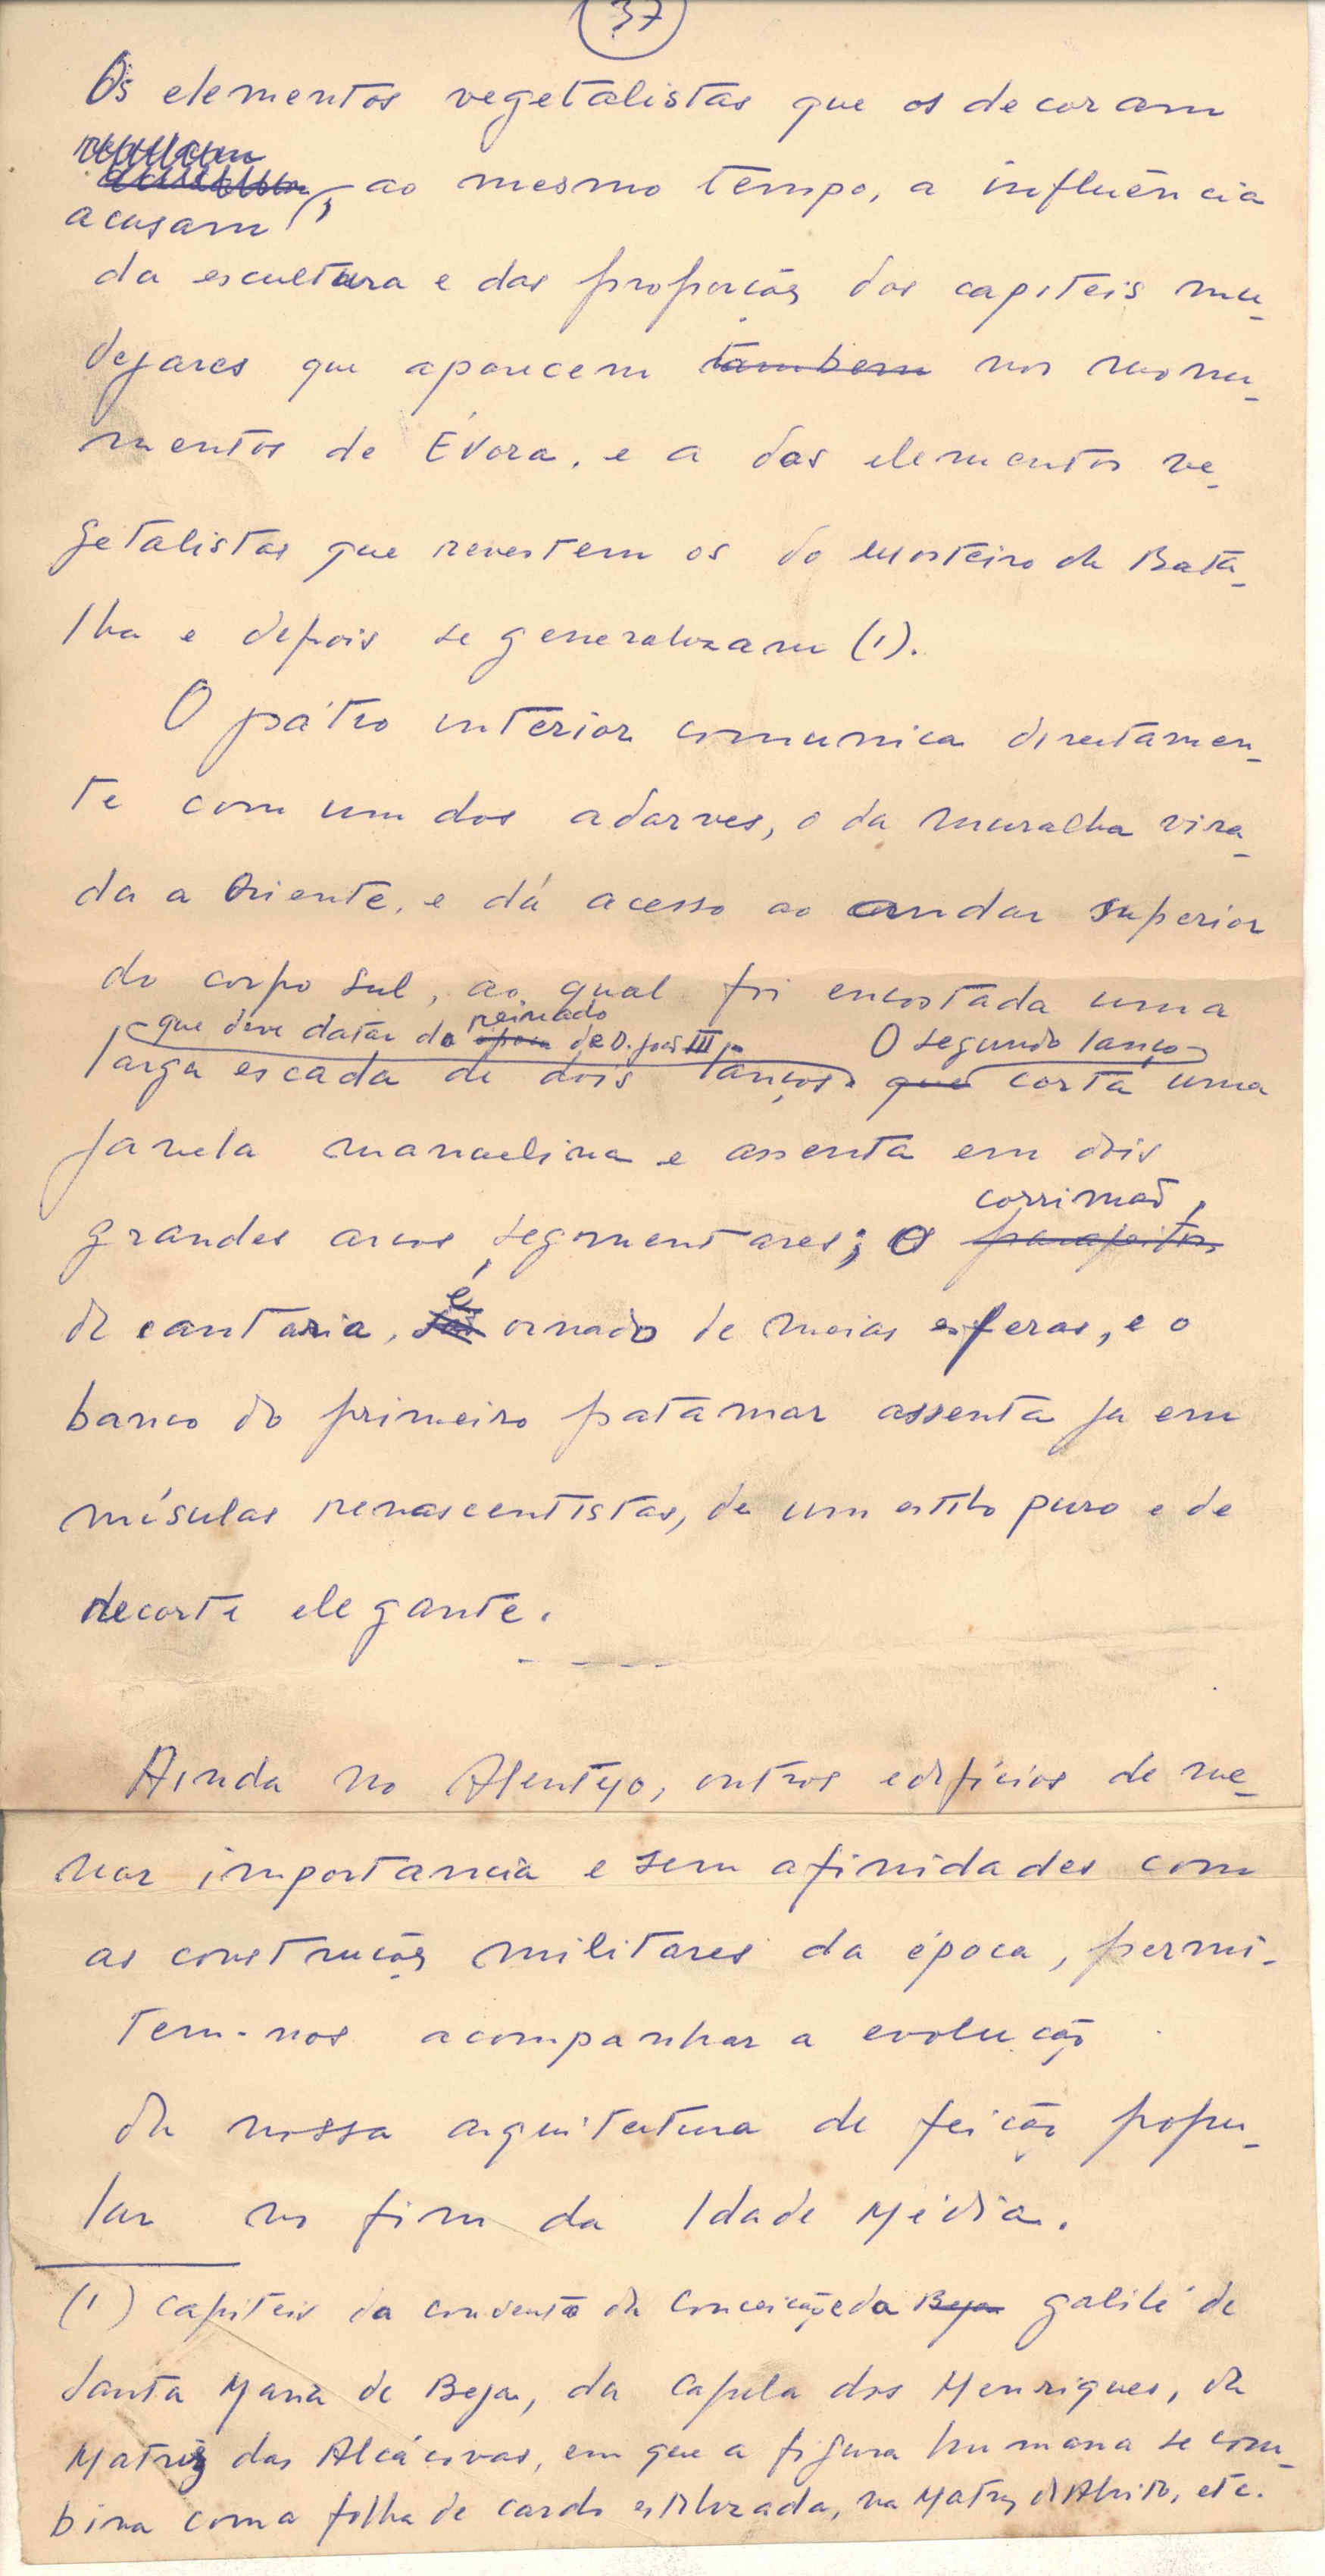 37
Os elementos vegetalistas que os decoram
acusam, ao mesmo tempo, a influência
da escultura e das proporções dos capiteis mu-
dejares que aparecem tambem nos monu-
mentos de Évora, e a dos elementos ve-
getalistas que revestem os do Mosteiro da Bata-
lha e depois se generalizam (1).
O pátio interior comunica directamen-
te com um dos adarves, o da muralha vira-
da a Oriente, e dá acesso ao andar superior
do corpo sul, ao qual foi encostada uma
que deve datar do reinado de D. João III O segundo lanço
larga escada de dois lanços que corta uma
janela manuelina e assenta em dois
corrimão,
grandes arcos segmentares; o parapeitos
de cantaria, é ornado de meias esferas, e o
banco do primeiro patamar assenta ja em
mísulas renascentistas, de um estilo puro e de
recorte elegante.
Ainda no Alentejo, outros edifícios de me-
nor importancia e sem afinidades com
as construções militares da época, permi-
tem-nos acompanhar a evolução
da nossa arquitectura de feição popu-
lar no fim da Idade Média.
(1) Capiteis do convento da Conceição e da Beja galilé de
Santa Maria de Beja, da Capela dos Henriques, da
Matriz das Alcáçovas, em que a figura humana se com-
bina com a folha de cardo estilizada, na Matriz d'Alvito, etc.